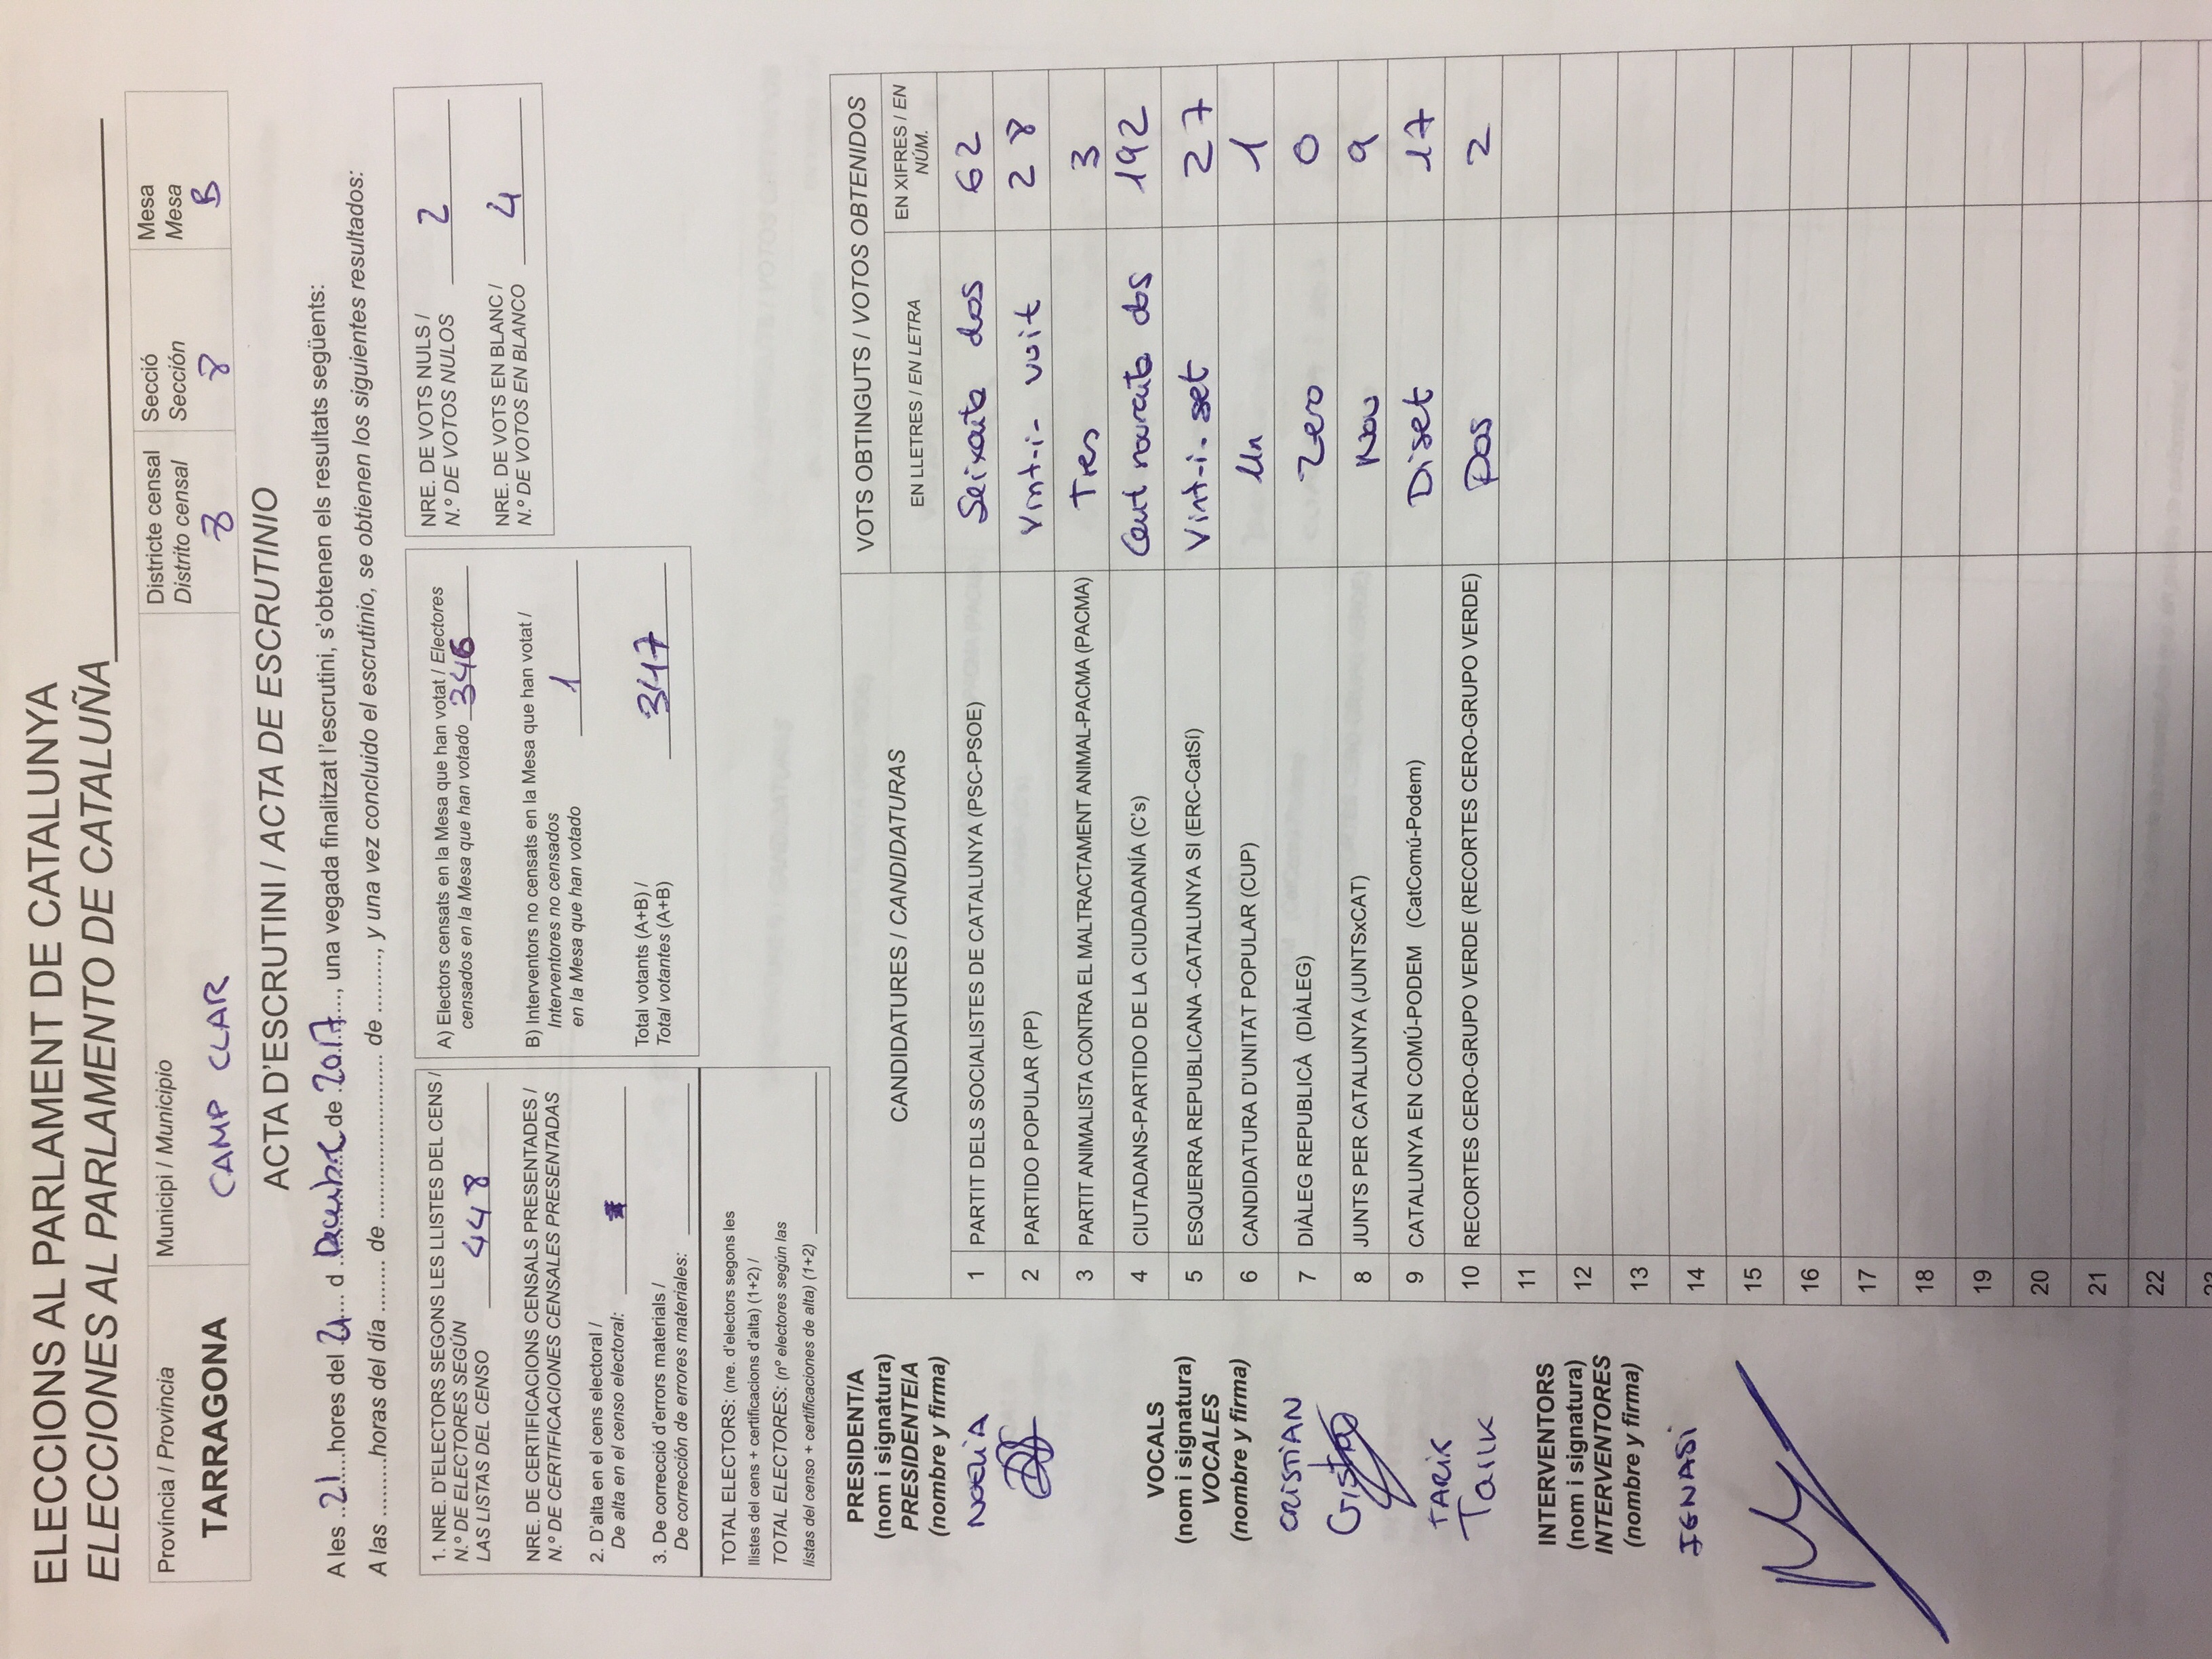 ELECCIONS AL PARLAMENT DE CATALUNYA
ELECCIONES AL PARLAMENTO DE CATALUÑA
Província / Provincia
TARRAGONA
Municipi / Municipio
CAMP CLAR
Districte censal
Distrito censal
8
Secció
Sección
8
Mesa
Mesa
B
ACTA D'ESCRUTINI / ACTA DE ESCRUTINIO
A les ..21....hores del 21.... d .Decembre. de .2017...., una vegada finalitzat l'escrutini, s'obtenen els resultats següents:
A las .........horas del día ........ de ......................... de ........., y una vez concluido el escrutinio, se obtienen los siguientes resultados:
1. NRE. D'ELECTORS SEGONS LES LLISTES DEL CENS /
N.º DE ELECTORES SEGÚN
LAS LISTAS DEL CENSO 448
NRE. DE CERTIFICACIONS CENSALS PRESENTADES /
N.º DE CERTIFICACIONES CENSALES PRESENTADAS
2. D'alta en el cens electoral /
De alta en el censo electoral:
3. De correcció d'errors materials /
De corrección de errores materiales:
TOTAL ELECTORS: (nre. d'electors segons les
llistes del cens + certificacions d'alta) (1+2) /
TOTAL ELECTORES: (nº electores según las
listas del censo + certificaciones de alta) (1+2)
A) Electors censats en la Mesa que han votat / Electores
censados en la Mesa que han votado 346
B) Interventors no censats en la Mesa que han votat /
Interventores no censados
en la Mesa que han votado 1
Total votants (A+B) /
Total votantes (A+B) 347
NRE. DE VOTS NULS /
N.º DE VOTOS NULOS 2
NRE. DE VOTS EN BLANC /
N.º DE VOTOS EN BLANCO 4
PRESIDENT/A
(nom i signatura)
PRESIDENTE/A
(nombre y firma)
NOELIA
VOCALS
(nom i signatura)
VOCALES
(nombre y firma)
CRISTIAN
Cristian
TARIK
Tarik
INTERVENTORS
(nom i signatura)
INTERVENTORES
(nombre y firma)
IGNASI
CANDIDATURES / CANDIDATURAS
VOTS OBTINGUTS / VOTOS OBTENIDOS
EN LLETRES / EN LETRA
EN XIFRES / EN
NÚM.
1 PARTIT DELS SOCIALISTES DE CATALUNYA (PSC-PSOE) Seixanta dos 62
2 PARTIDO POPULAR (PP) Vint-i- vuit 28
3 PARTIT ANIMALISTA CONTRA EL MALTRACTAMENT ANIMAL-PACMA (PACMA) Tres 3
4 CIUTADANS-PARTIDO DE LA CIUDADANÍA (C's) Cent noranta dos 192
5 ESQUERRA REPUBLICANA -CATALUNYA SI (ERC-CatSí) Vint-i-set 27
6 CANDIDATURA D'UNITAT POPULAR (CUP) Un 1
7 DIÀLEG REPUBLICÀ (DIÀLEG) Zero 0
8 JUNTS PER CATALUNYA (JUNTSxCAT) Nou 9
9 CATALUNYA EN COMÚ-PODEM (CatComú-Podem) Diset 17
10 RECORTES CERO-GRUPO VERDE (RECORTES CERO-GRUPO VERDE) Dos 2
11
12
13
14
15
16
17
18
19
20
21
22
23